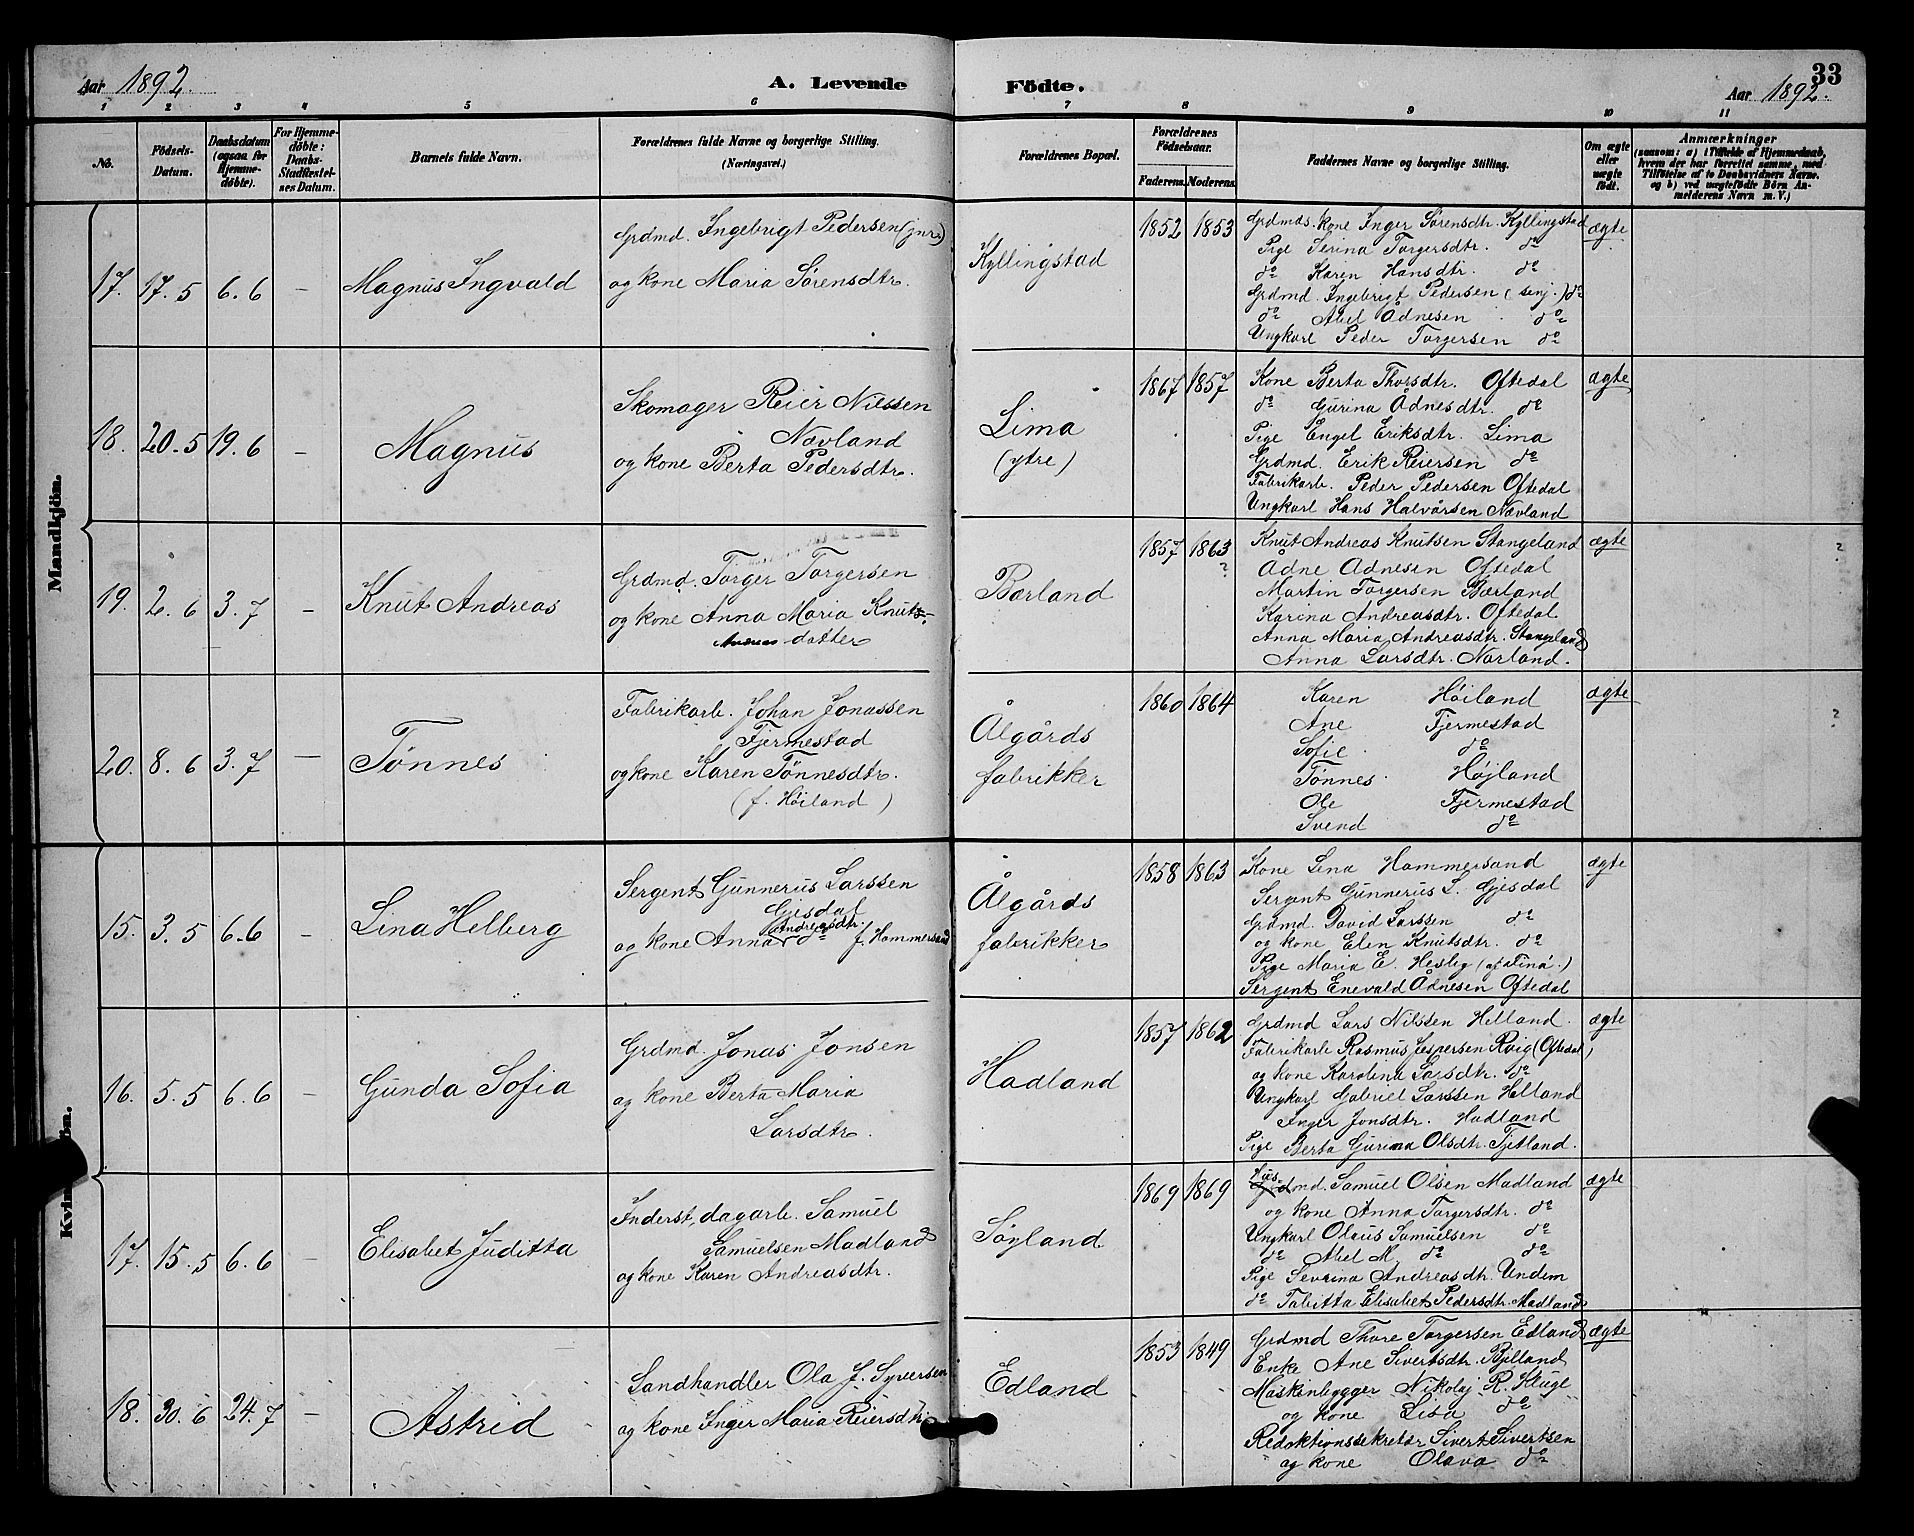 Aar 1892.
A. Levende
Födte.
33
Aar 1892.
1 2 3 4 5 6 7 8 9 10 11
No.
Födsels-
Datum.
Daabsdatum
(ogsaa for
Hjemme-
döbte).
For Hjemme-
döbte:
Daabs-
Stadfæstel-
ses Datum.
Barnets fulde Navn.
Forældrenes fulde Navne og borgerlige Stilling.
(Næringsvei.)
Forældrenes Bopæl.
Forældrenes
Födselsaar.
Faderens. Moderens.
Faddernes Navne og borgerlige Stilling.
Om ægte
eller
uægte
födt.
Anmærkninger
(saasom: a) i Tilfælde af Hjemmedaab,
hvem der har forrettet samme, med
Tilföielse af to Daabsvidners Navne.
og b) ved uægtefödte Börn An-
melderens Navn m. V.)
Mandkjön.
17. 17.5 6.6 —
Magnus Ingvald
Grdmd. Ingebrigt Pedersen (jnr.)
og kone Maria Sørensdtr.
Kyllingstad
1852 1853
Grdmds. kone Inger Sørensdtr. Kyllingstad
Pige Serina Torgersdtr. do
do Karen Hansdtr. do
Grdmd. Ingebrigt Pedersen (senj.) do
do Abel Ådnesen do
Ungkarl Peder Torgersen do
ægte
18. 20.5 19.6 —
Magnus
Skomager Reier Nilssen
Nævland
og kone Berta Pedersdtr.
Lima
(ytre)
1867 1857
Kone Berta Thorsdtr. Oftedal
do Gurina Ådnesdtr. do
Pige Engel Eriksdtr. Lima
Grdmd. Erik Reiersen do
Fabrikarb. Peder Pedersen Oftedal
Ungkarl Hans Halvårsen Nævland
ægte
19. 2.6 3.7 —
Knut Andreas
Grdmd. Torger Torgersen
og kone Anna Maria Knuts-
Andreas datter
Bærland
1857 1863
?
Knut Andreas Knutsen Stangeland
Ådne Ådnesen Oftedal
Martin Torgersen Bærland
Karina Andreasdtr. Oftedal
Anna Maria Andreasdtr. Stangeland
Anna Larsdtr. Norland.
ægte
?
20. 8.6 3.7 —
Tønnes
Fabrikarb. Johan Jonassen
Fjermestad
og kone Karen Tønnesdtr.
(f. Høiland)
Ålgårds
fabrikker
1860 1864
Karen Høiland
Ane Fjermestad
Sofie do
Tønnes Højland
Ole Fjermestad
Svend do
ægte
?
Kvin
ön.
15. 3.5 6.6 —
Lina Helberg
Sergent Gunnerus Larssen
Gjesdal
Andreasdtr.
og kone Anna do f. Hammersand
Ålgårds
fabrikker
1858 1863
Kone Lina Hammersand
Sergent Gunnerus L. Gjesdal
Grdmd. David Larssen do
og kone Elen Knutsdtr. do
Pige Maria E. Hesby
Sergent Enevald Ådnesen Oftedal
ægte
16. 5.5 6.6 —
Gunda Sofia
Grdmd. Jonas Jonsen
og kone Berta Maria
Larsdtr.
Hadland
1857 1862
Grdmd Lars Nilssen Helland.
Fabrikarb Rasmus Jespersen Roig (Oftedal)
og kone Karolina Larsdtr. do
Ungkarl Gabriel Larssen Helland
Inger Jonsdtr. Hadland
Pige Berta Gurina Olsdtr. Tjetland.
ægte
17. 15.5 6.6 —
Elisabet Juditta
Inderst, dagarb. Samuel
Samuelsen Madland
og kone Karen Andreasdtr.
Søyland
1869 1869
Hus-
Grdmd. Samuel Olsen Madland
og kone Anna Torgersdtr. do
Ungkarl Olaus Samuelsen do
do Abel M. do do
Pige Severina Andreasdtr. Undem
do Tabitta Elisabet Pedersdtr. Madland
ægte
18. 30.6 24.7 —
Astrid
Landhandler Ola J. Syversen
og kone Inger Maria Reiersdtr.
Edland
1853 1849
Grdmd Thore Torgersen Edland
Enke Ane Sivertsdtr. Bjelland
Maskinbygger Nikolaj R. Kluge
og kone Lisa do
Redaktionssekretær Sivert Sivertsen
og kone Olava do
ægte